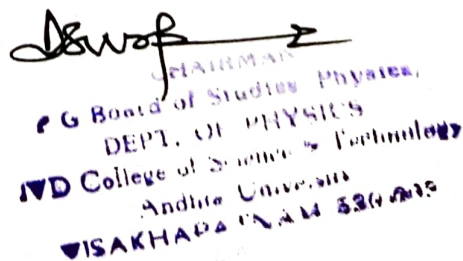 CHAIRMAN
P G Board of Studies Physics,
DEPT. OF PHYSICS
JVD College of Science & Technology
Andhra University
VISAKHAPATNAM